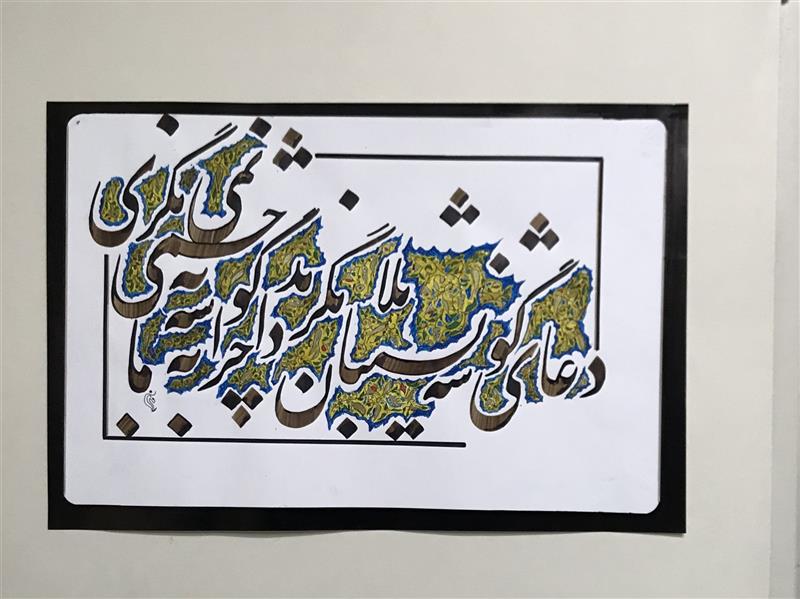 دعای گوشه نشینان بلا بگرداند
چرا به گوشه چشمی به ما نمی نگری